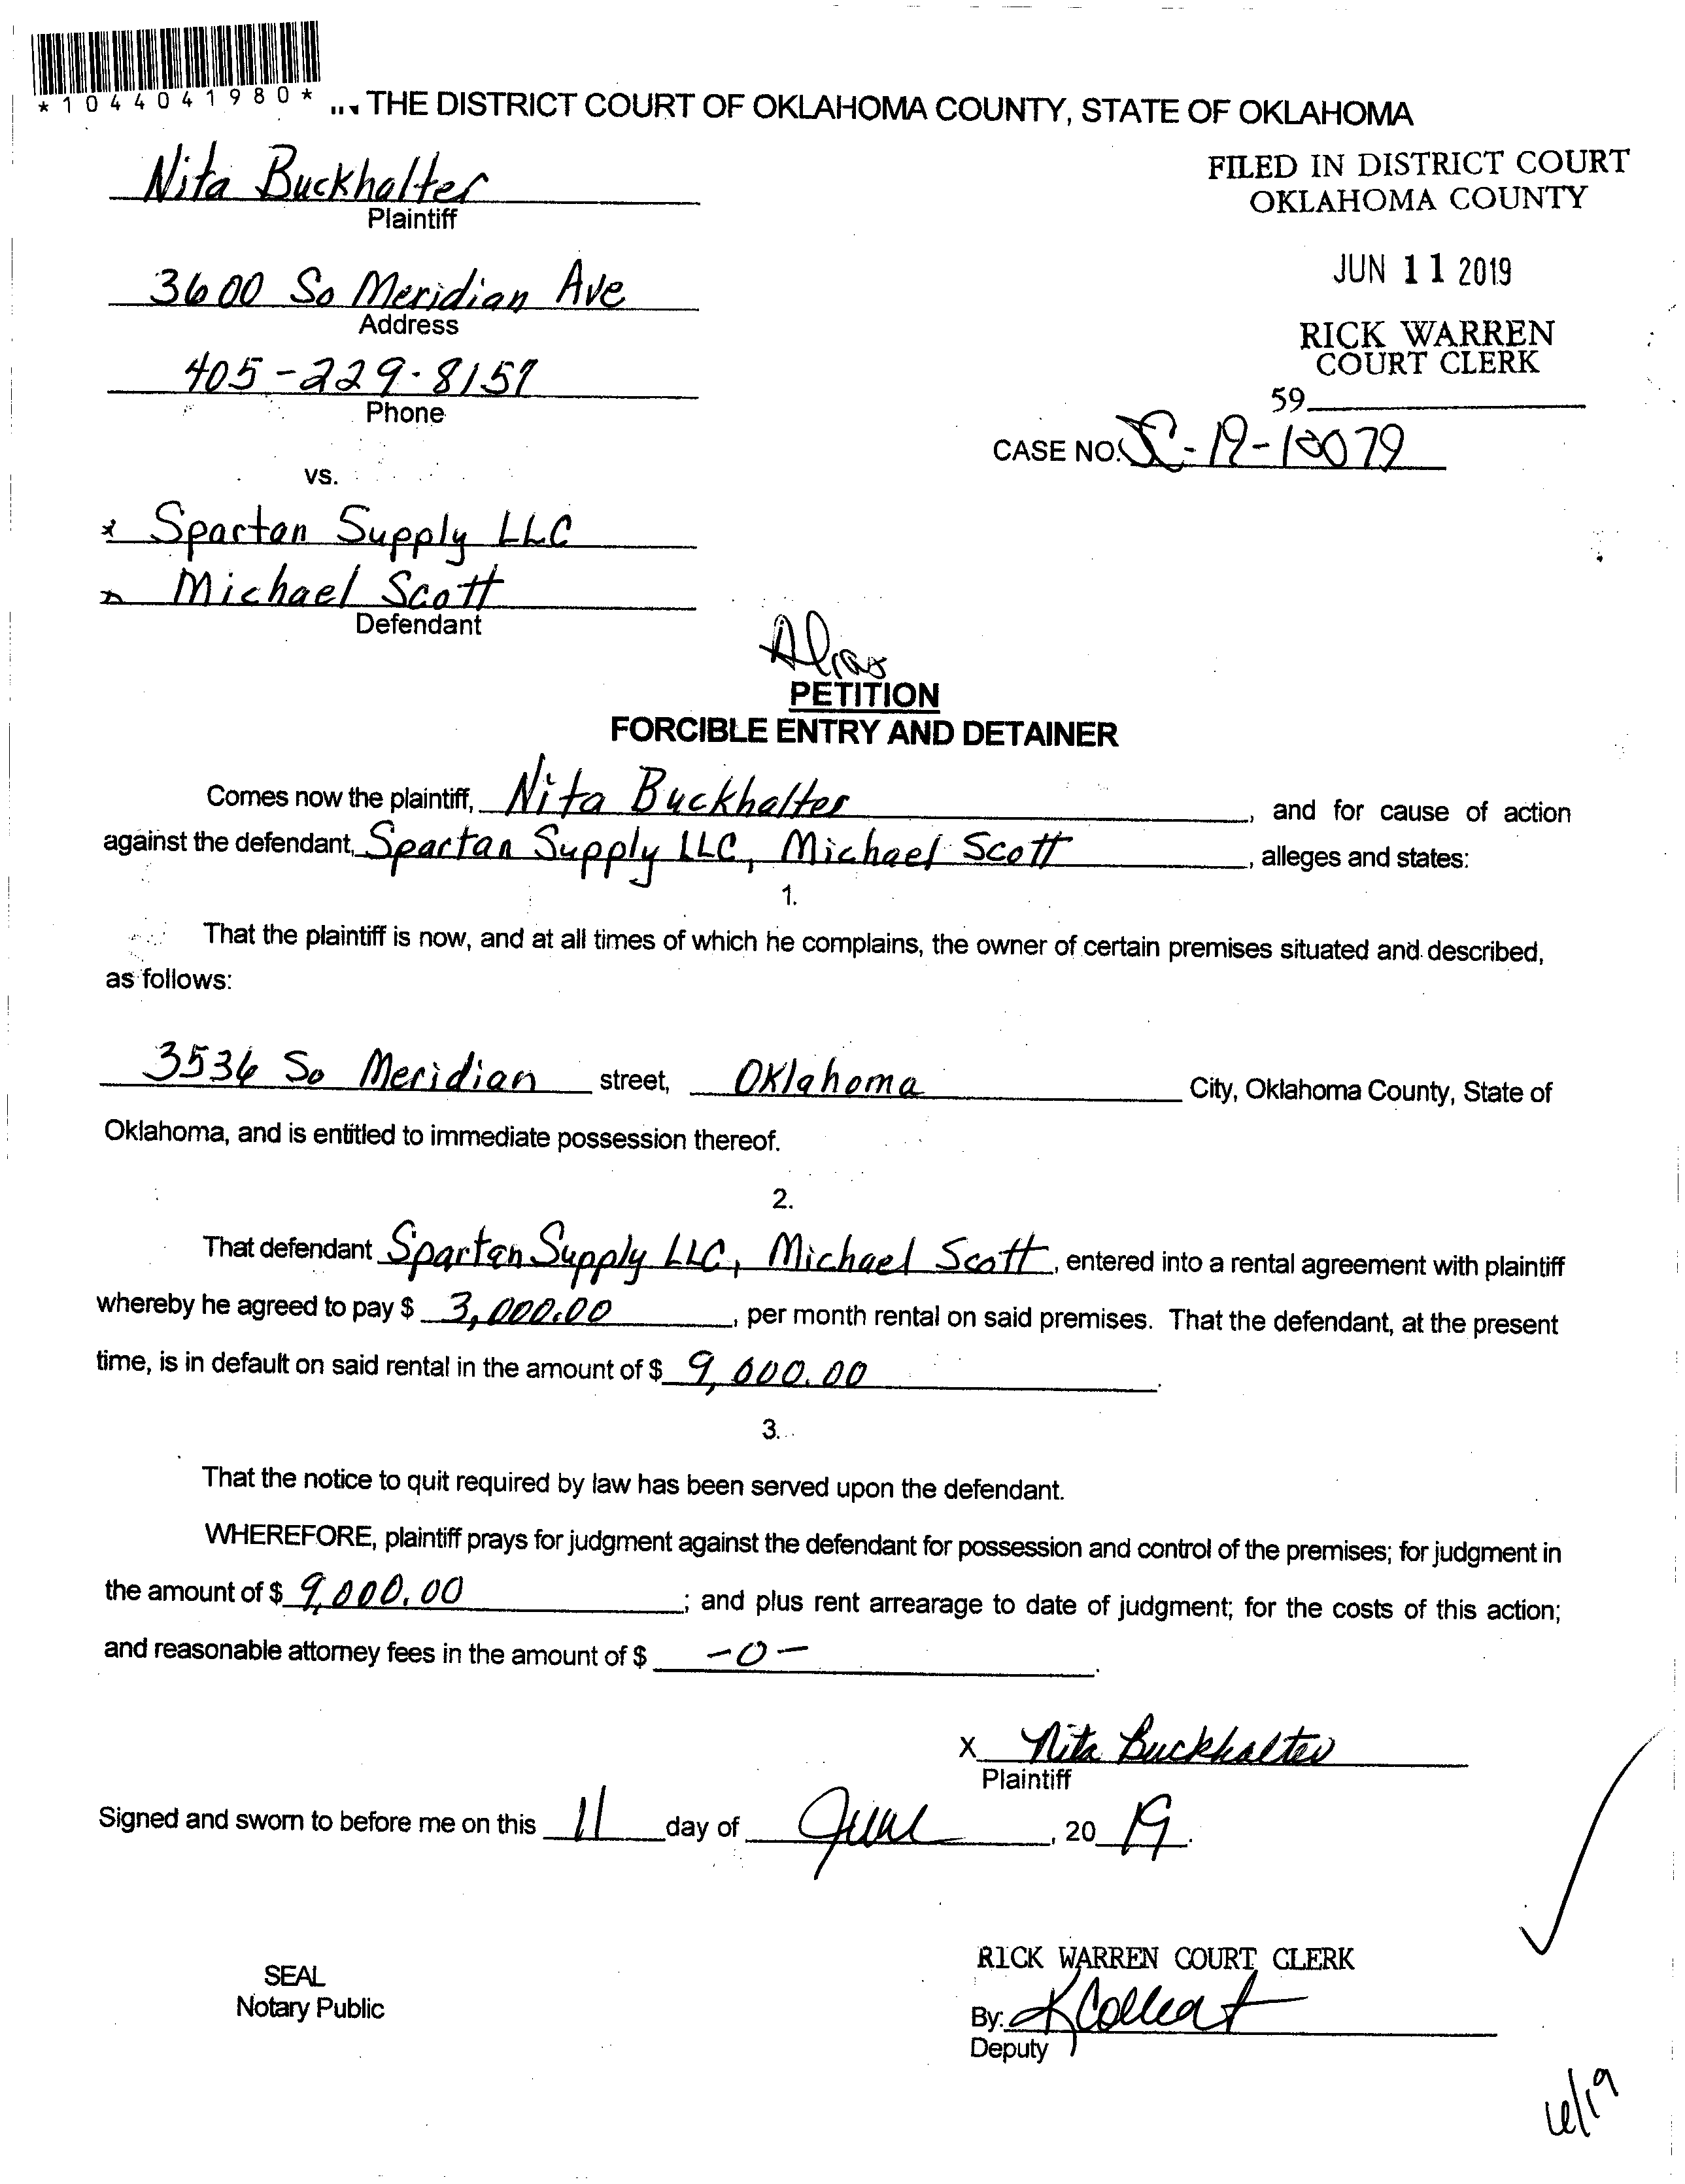 *1044041980*
THE DISTRICT COURT OF OKLAHOMA COUNTY, STATE OF OKLAHOMA
Nita Buckhalter
Plaintiff
FILED IN DISTRICT COURT
OKLAHOMA COUNTY
JUN 11 2019
RICK WARREN
COURT CLERK
59
3600 So Meridian Ave
Address
405-229-8157
Phone
CASE NO. SC-19-10079
vs.
Spartan Supply LLC
Michael Scott
Defendant
Alias
PETITION
FORCIBLE ENTRY AND DETAINER
Comes now the plaintiff, Nita Buckhalter, and for cause of action
against the defendant, Spartan Supply LLC, Michael Scott, alleges and states:
1.
That the plaintiff is now, and at all times of which he complains, the owner of certain premises situated and described,
as follows:
3536 So Meridian street, Oklahoma City, Oklahoma County, State of
Oklahoma, and is entitled to immediate possession thereof.
2.
That defendant Spartan Supply LLC, Michael Scott, entered into a rental agreement with plaintiff
whereby he agreed to pay $ 3,000.00, per month rental on said premises. That the defendant, at the present
time, is in default on said rental in the amount of $ 9,000.00.
3.
That the notice to quit required by law has been served upon the defendant.
WHEREFORE, plaintiff prays for judgment against the defendant for possession and control of the premises; for judgment in
the amount of $ 9,000.00; and plus rent arrearage to date of judgment; for the costs of this action;
and reasonable attorney fees in the amount of $ -0-.
X Nita Buckhalter
Plaintiff
Signed and sworn to before me on this 11 day of June, 2019.
SEAL
Notary Public
RICK WARREN COURT CLERK
By:
Deputy
6/19